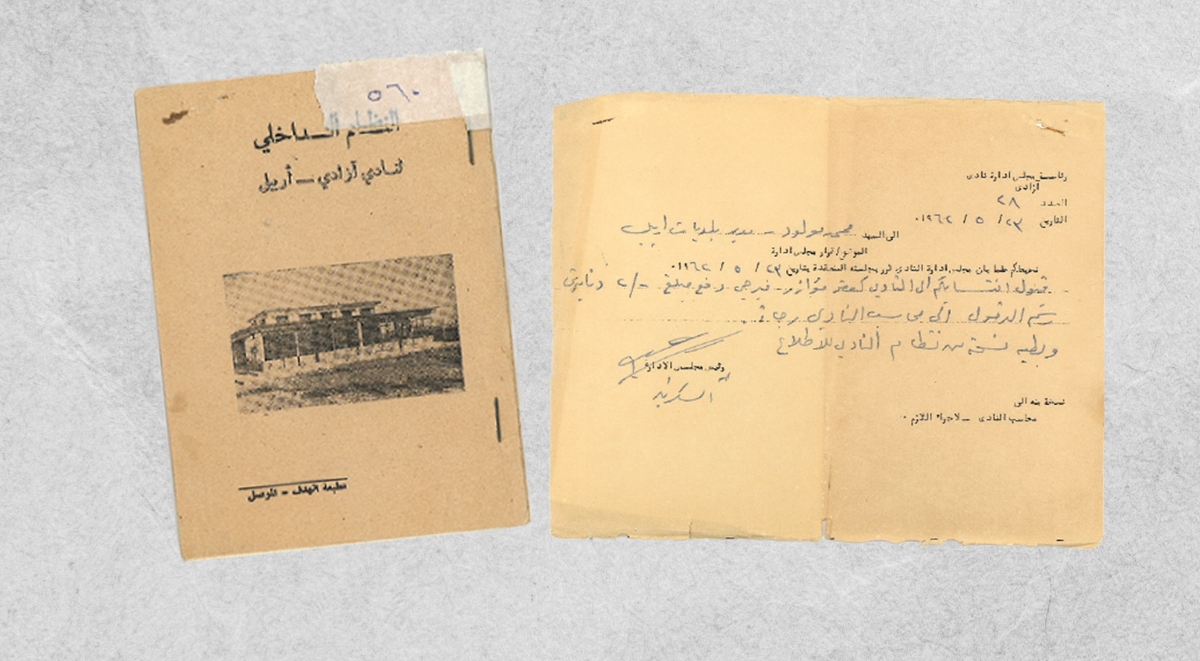 ٥٦٠
النظام الداخلي
لنادي آزادي – أربيل
مطبعة الهدف – الموصل
رئاسة مجلس ادارة نادي
آزادى
العدد ٢٨
التاريخ ٢٣ / ٥ / ١٩٦٢٠
الى السيد محمد مولود - مدير بلديات اربيل
الموضوع / قرار مجلس ادارة
نحيطكم علما بان مجلس ادارة النادي قرر بجلسته المنعقدة بتاريخ ٢٣ / ٥ / ١٩٦٢٠
قبول انتسابكم الى النادي كعضو مؤازر فيرجى دفع مبلغ -/٢ دنانير
رسم الدخول الى محاسب النادي رجاءً
وبطيه نسخة من نظام النادي للأطلاع
رئيس مجلس الادارة
السكرتير
نسخة منه الى
محاسب النادي – لاجراء اللازم ٠